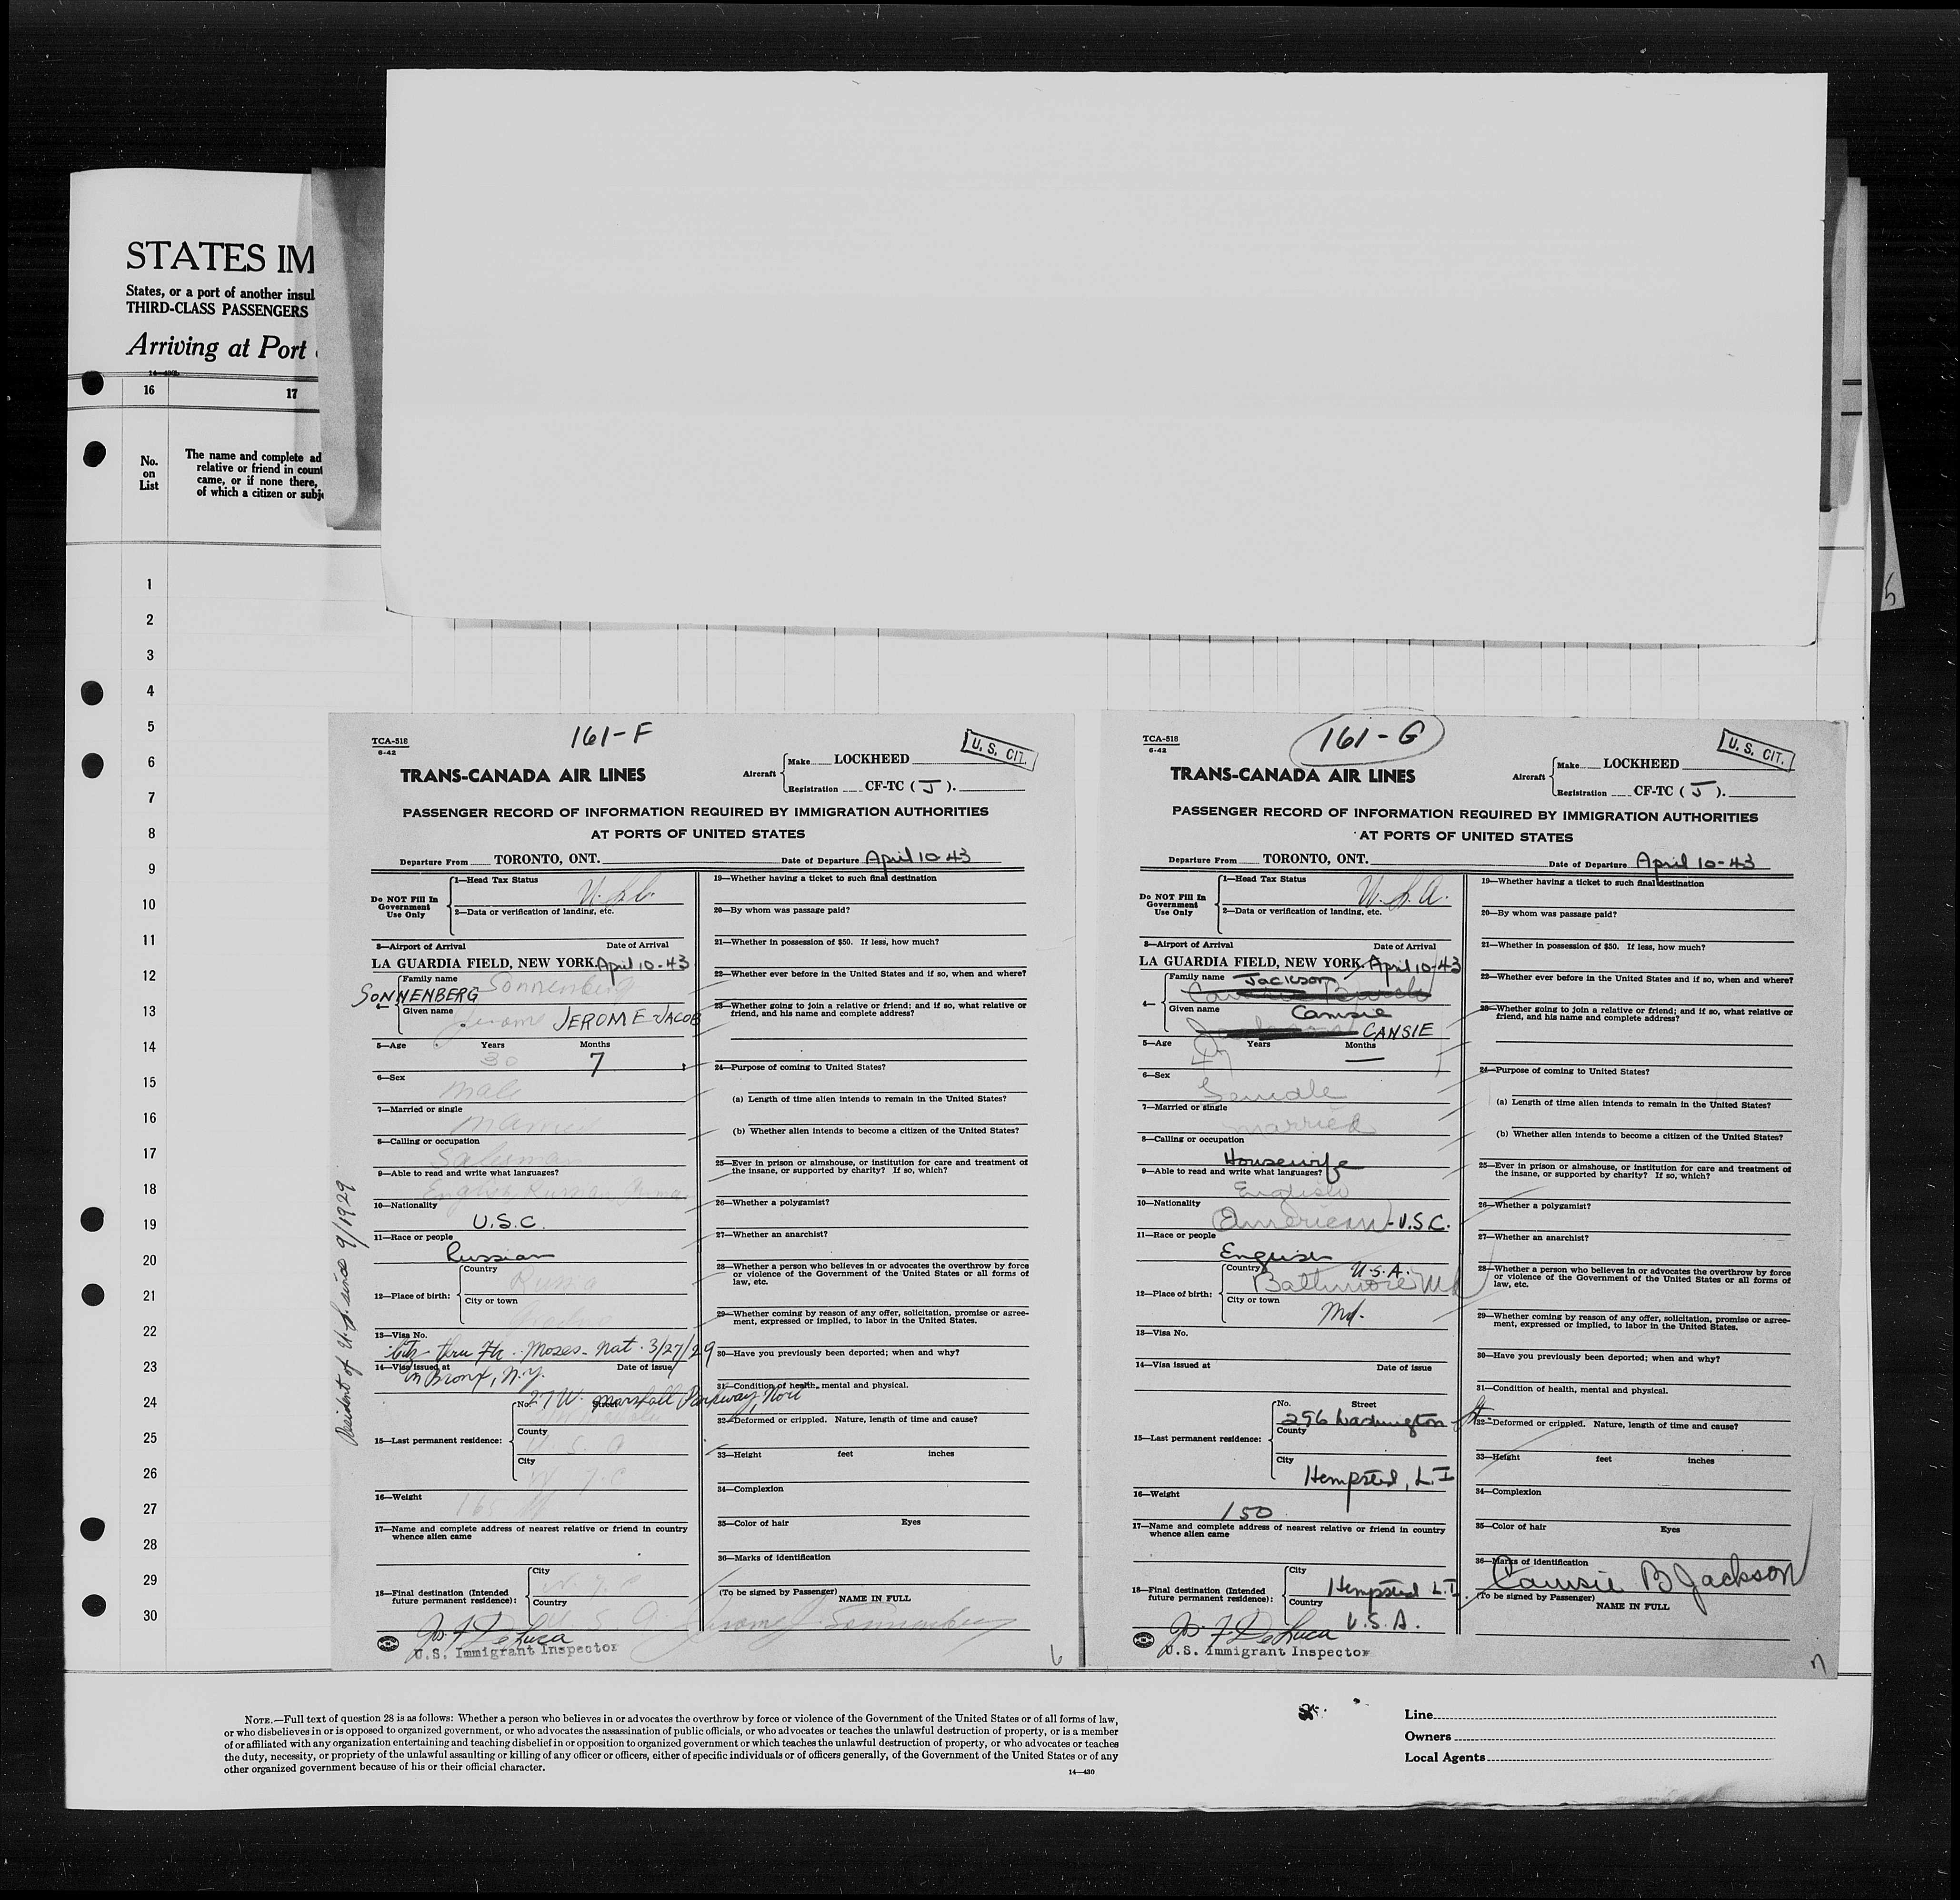 STATES IM
States, or a port of another insul
THIRD-CLASS PASSENGERS
Arriving at Port
16 17
No. on List
The name and complete ad
relative or friend in count
came, or if none there,
of which a citizen or subje
1
2
3
4
5
6
7
8
9
10
11
12
13
14
15
16
17
18
19
20
21
22
23
24
25
26
27
28
29
30
5
161-F
TCA-518
6-42
U. S. CIT.
TRANS-CANADA AIR LINES
Aircraft
Make LOCKHEED
Registration CF-TC ( J ).
PASSENGER RECORD OF INFORMATION REQUIRED BY IMMIGRATION AUTHORITIES
AT PORTS OF UNITED STATES
Departure From TORONTO, ONT. Date of Departure April 10-43
Do NOT Fill In
Government
Use Only
1—Head Tax Status
U.S.C.
2—Data or verification of landing, etc.
3—Airport of Arrival Date of Arrival
LA GUARDIA FIELD, NEW YORK April 10-43
4—
Family name Sonnenberg
SONNENBERG
Given name Jerome JEROME-JACOB
5—Age Years Months
30 7
6—Sex
Male
7—Married or single
Married
8—Calling or occupation
Salesman
9—Able to read and write what languages?
English Russian German
10—Nationality
U.S.C.
11—Race or people
Russian
12—Place of birth:
Country Russia
City or town
13—Visa No.
thru Fr. Moses- Nat. 3/27/29
14—Visa issued at Date of issue
in Bronx, N.Y.
15—Last permanent residence:
No. Street
27 W. Marshall Parkway, Nort
County
U.S.A
City
N.Y.C
16—Weight
165
17—Name and complete address of nearest relative or friend in country
whence alien came
18—Final destination (Intended
future permanent residence):
City N.Y.C
Country U.S.A.
De Luca
U.S. Immigrant Inspector
Resident of U.S. since 9/1929
19—Whether having a ticket to such final destination
20—By whom was passage paid?
21—Whether in possession of $50. If less, how much?
22—Whether ever before in the United States and if so, when and where?
23—Whether going to join a relative or friend; and if so, what relative or
friend, and his name and complete address?
24—Purpose of coming to United States?
(a) Length of time alien intends to remain in the United States?
(b) Whether alien intends to become a citizen of the United States?
25—Ever in prison or almshouse, or institution for care and treatment of
the insane, or supported by charity? If so, which?
26—Whether a polygamist?
27—Whether an anarchist?
28—Whether a person who believes in or advocates the overthrow by force
or violence of the Government of the United States or all forms of
law, etc.
29—Whether coming by reason of any offer, solicitation, promise or agree-
ment, expressed or implied, to labor in the United States.
30—Have you previously been deported; when and why?
31—Condition of health, mental and physical.
32—Deformed or crippled. Nature, length of time and cause?
33—Height feet inches
34—Complexion
35—Color of hair Eyes
36—Marks of identification
(To be signed by Passenger)
NAME IN FULL
Jerome J. Sonnenberg
6
161-G
TCA-518
6-42
U. S. CIT.
TRANS-CANADA AIR LINES
Aircraft
Make LOCKHEED
Registration CF-TC ( J ).
PASSENGER RECORD OF INFORMATION REQUIRED BY IMMIGRATION AUTHORITIES
AT PORTS OF UNITED STATES
Departure From TORONTO, ONT. Date of Departure April 10-43
Do NOT Fill In
Government
Use Only
1—Head Tax Status
U.S.A.
2—Data or verification of landing, etc.
3—Airport of Arrival Date of Arrival
LA GUARDIA FIELD, NEW YORK April 10-43
4—
Family name Jackson
Given name Camsie
CANSIE
5—Age Years Months
47 —
6—Sex
Female
7—Married or single
Married
8—Calling or occupation
Housewife
9—Able to read and write what languages?
English
10—Nationality
American-U.S.C.
11—Race or people
English
12—Place of birth:
Country U.S.A.
Baltimore Md
City or town
Md.
13—Visa No.
14—Visa issued at Date of issue
15—Last permanent residence:
No. Street
296 Washington St.
County
City
Hempsted, L.I
16—Weight
150
17—Name and complete address of nearest relative or friend in country
whence alien came
18—Final destination (Intended
future permanent residence):
City Hempsted L.I.
Country U.S.A.
De Luca
U.S. Immigrant Inspector
19—Whether having a ticket to such final destination
20—By whom was passage paid?
21—Whether in possession of $50. If less, how much?
22—Whether ever before in the United States and if so, when and where?
23—Whether going to join a relative or friend; and if so, what relative or
friend, and his name and complete address?
24—Purpose of coming to United States?
(a) Length of time alien intends to remain in the United States?
(b) Whether alien intends to become a citizen of the United States?
25—Ever in prison or almshouse, or institution for care and treatment of
the insane, or supported by charity? If so, which?
26—Whether a polygamist?
27—Whether an anarchist?
28—Whether a person who believes in or advocates the overthrow by force
or violence of the Government of the United States or all forms of
law, etc.
29—Whether coming by reason of any offer, solicitation, promise or agree-
ment, expressed or implied, to labor in the United States.
30—Have you previously been deported; when and why?
31—Condition of health, mental and physical.
32—Deformed or crippled. Nature, length of time and cause?
33—Height feet inches
34—Complexion
35—Color of hair Eyes
36—Marks of identification
Camsie B Jackson
(To be signed by Passenger)
NAME IN FULL
7
NOTE.—Full text of question 28 is as follows: Whether a person who believes in or advocates the overthrow by force or violence of the Government of the United States or of all forms of law,
or who disbelieves in or is opposed to organized government, or who advocates the assassination of public officials, or who advocates or teaches the unlawful destruction of property, or is a member
of or affiliated with any organization entertaining and teaching disbelief in or opposition to organized government or which teaches the unlawful destruction of property, or who advocates or teaches
the duty, necessity, or propriety of the unlawful assaulting or killing of any officer or officers, either of specific individuals or of officers generally, of the Government of the United States or of any
other organized government because of his or their official character.
14—430
Line
Owners
Local Agents